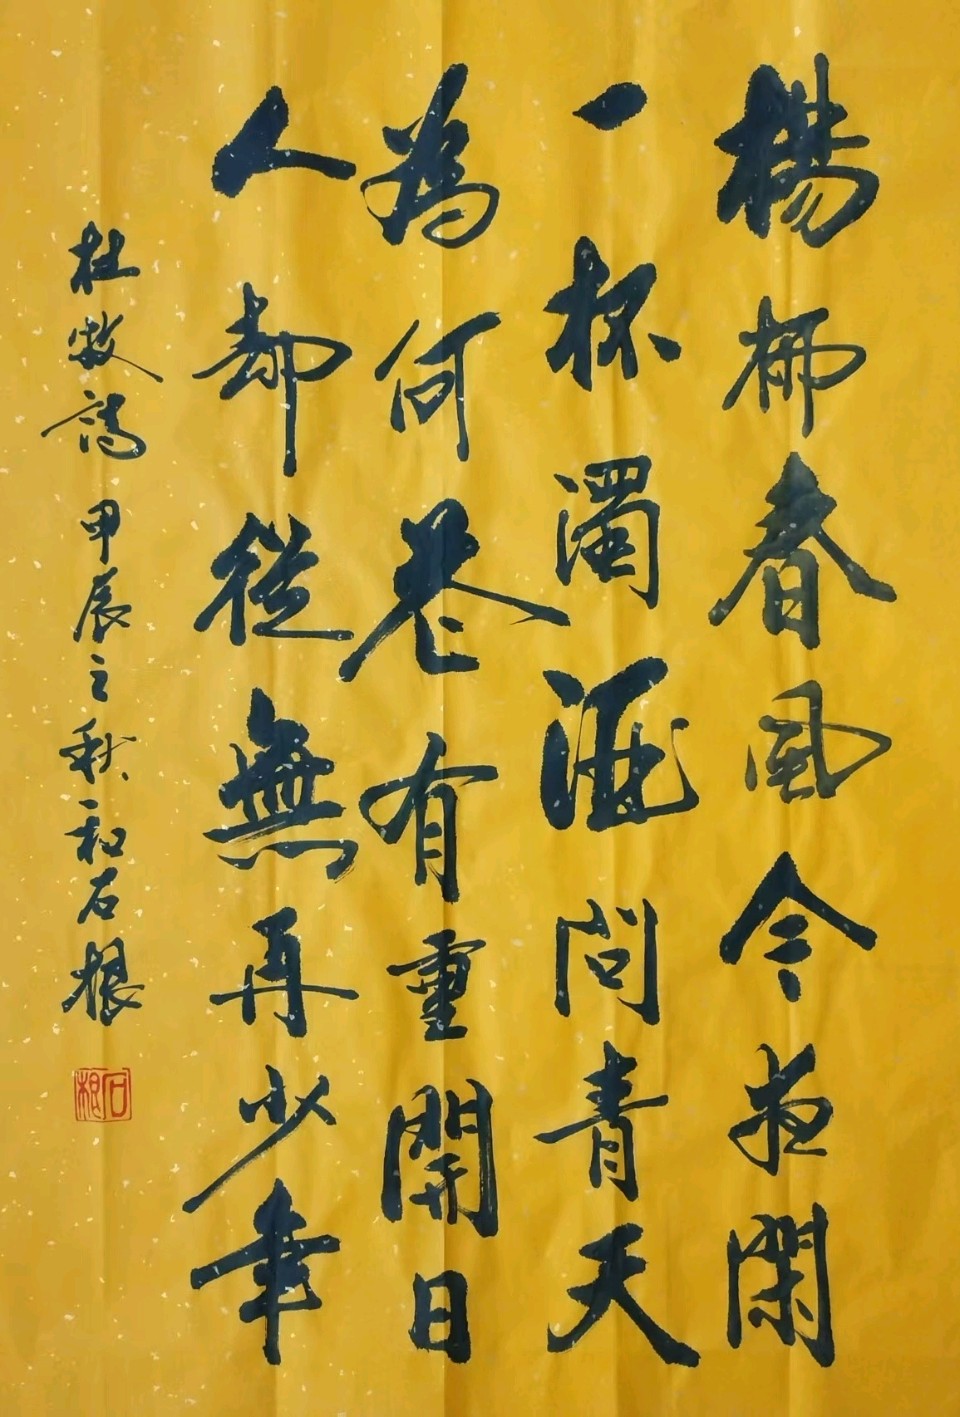 楊柳春風今夜閑
一杯濁酒問青天
為何花有重開日
人却從無再少年
杜牧詩 甲辰之秋 和石根
石根